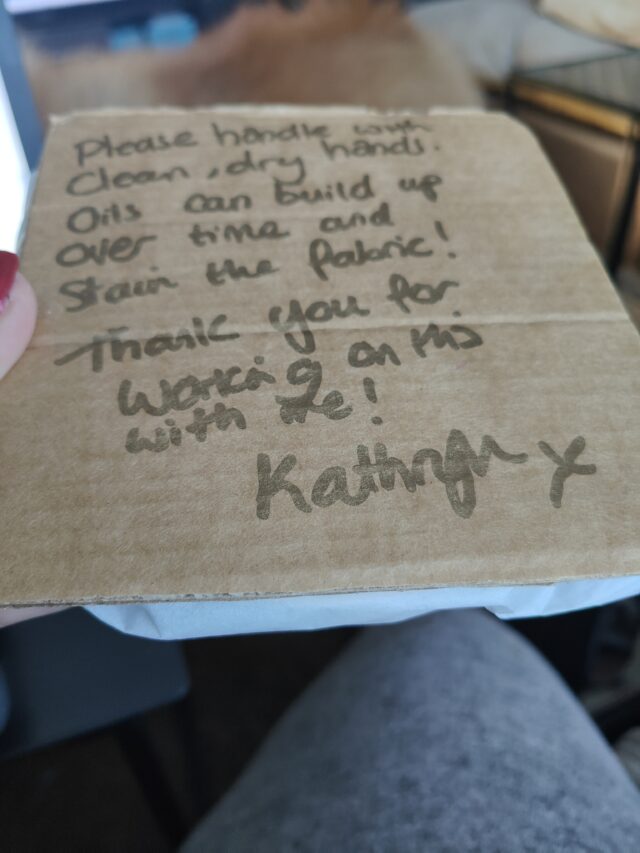 Please handle with
Clean, dry hands.
Oils can build up
over time and
Stain the fabric!
Thank you for
Working on this
with me!
Kathryn x